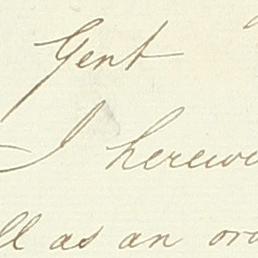 Gent
I herewi
ll as an or